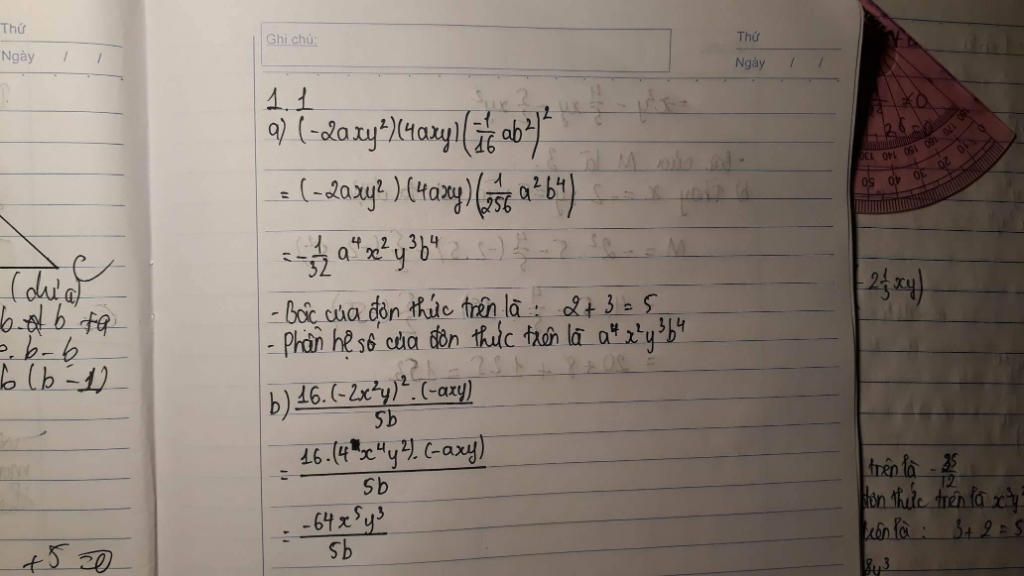 Thứ
Ngày / /
(dựa)
b.a b +a
b - b
b (b - 1)
+5 =0
Ghi chú:
Thứ
Ngày / /
1.1
a) (-2axy²)(4axy)(-1/16 ab²)²
= (-2axy²)(4axy)(1/256 a²b⁴)
= -1/32 a⁴x²y³b⁴
- Bậc của đơn thức trên là : 2 + 3 = 5
- Phần hệ số của đơn thức trên là a⁴x²y³b⁴
b) 16.(-2x²y)².(-axy)/5b
= 16.(4x⁴y²).(-axy)/5b
= -64x⁵y³/5b
-2 1/3 xy)
trên là -35/12
đơn thức trên là x³y
trên là : 3 + 2 = 5
8y³